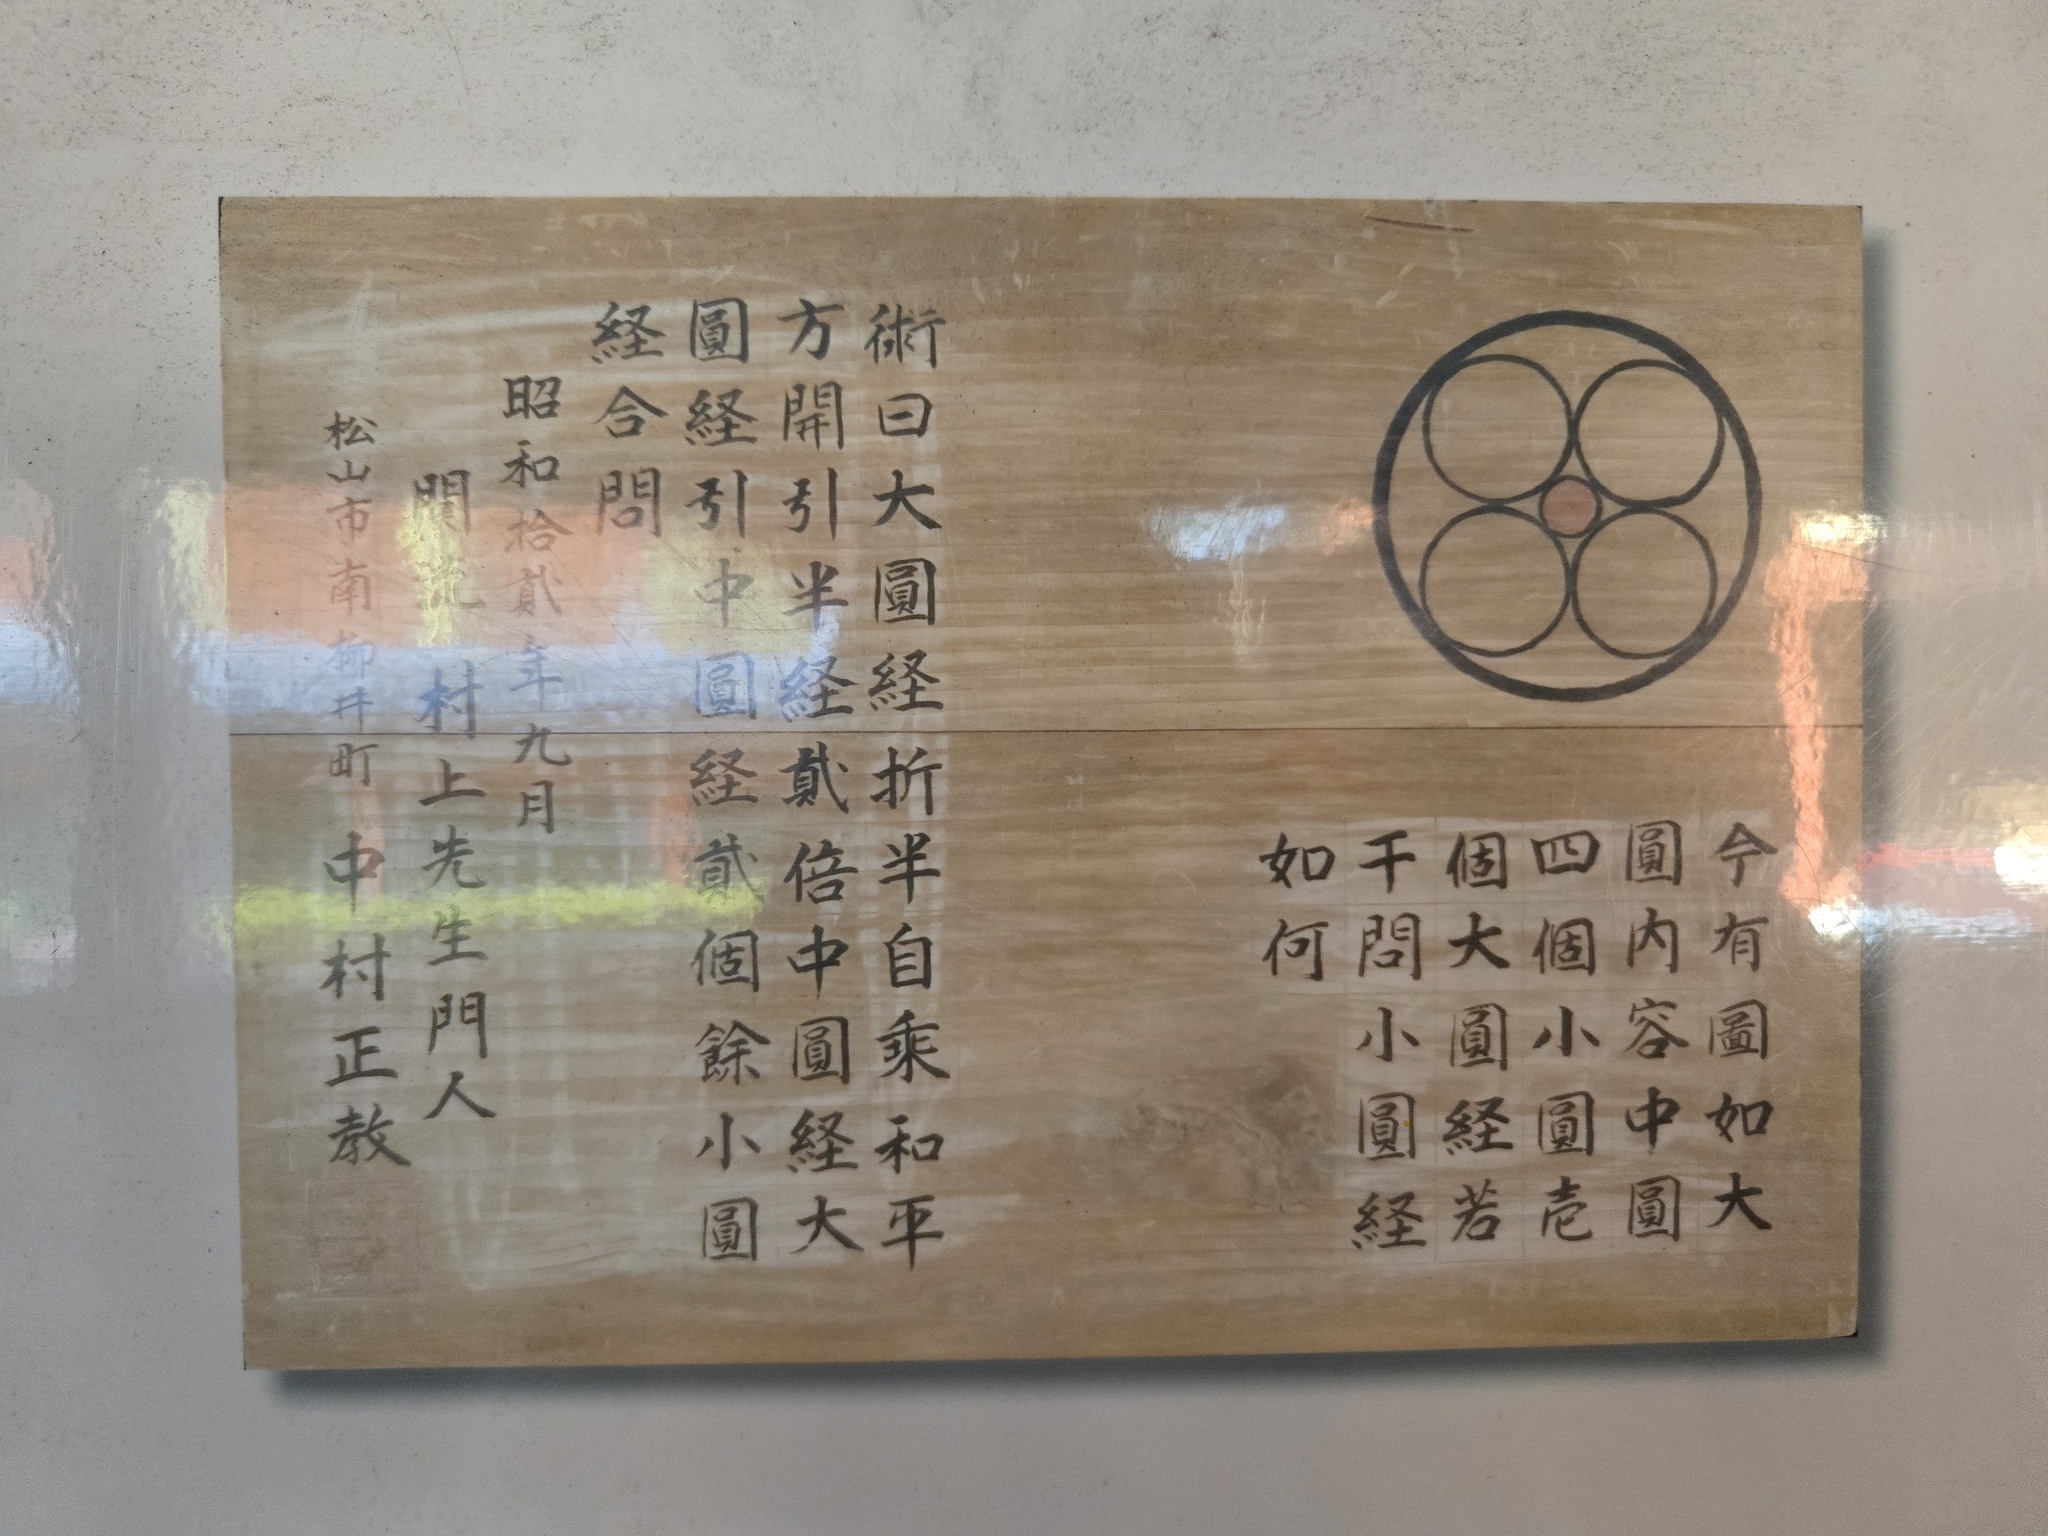 今有圖如大
圓内容中圓
四個小圓壱
個大圓経若
干問小圓経
如何
術曰大圓経折半自乘和平
方開引半経貳倍中圓経大
圓経引中圓経貳個餘小圓
経合問
昭和拾貳年九月
関流 村上先生門人
松山市南柳井町 中村正教